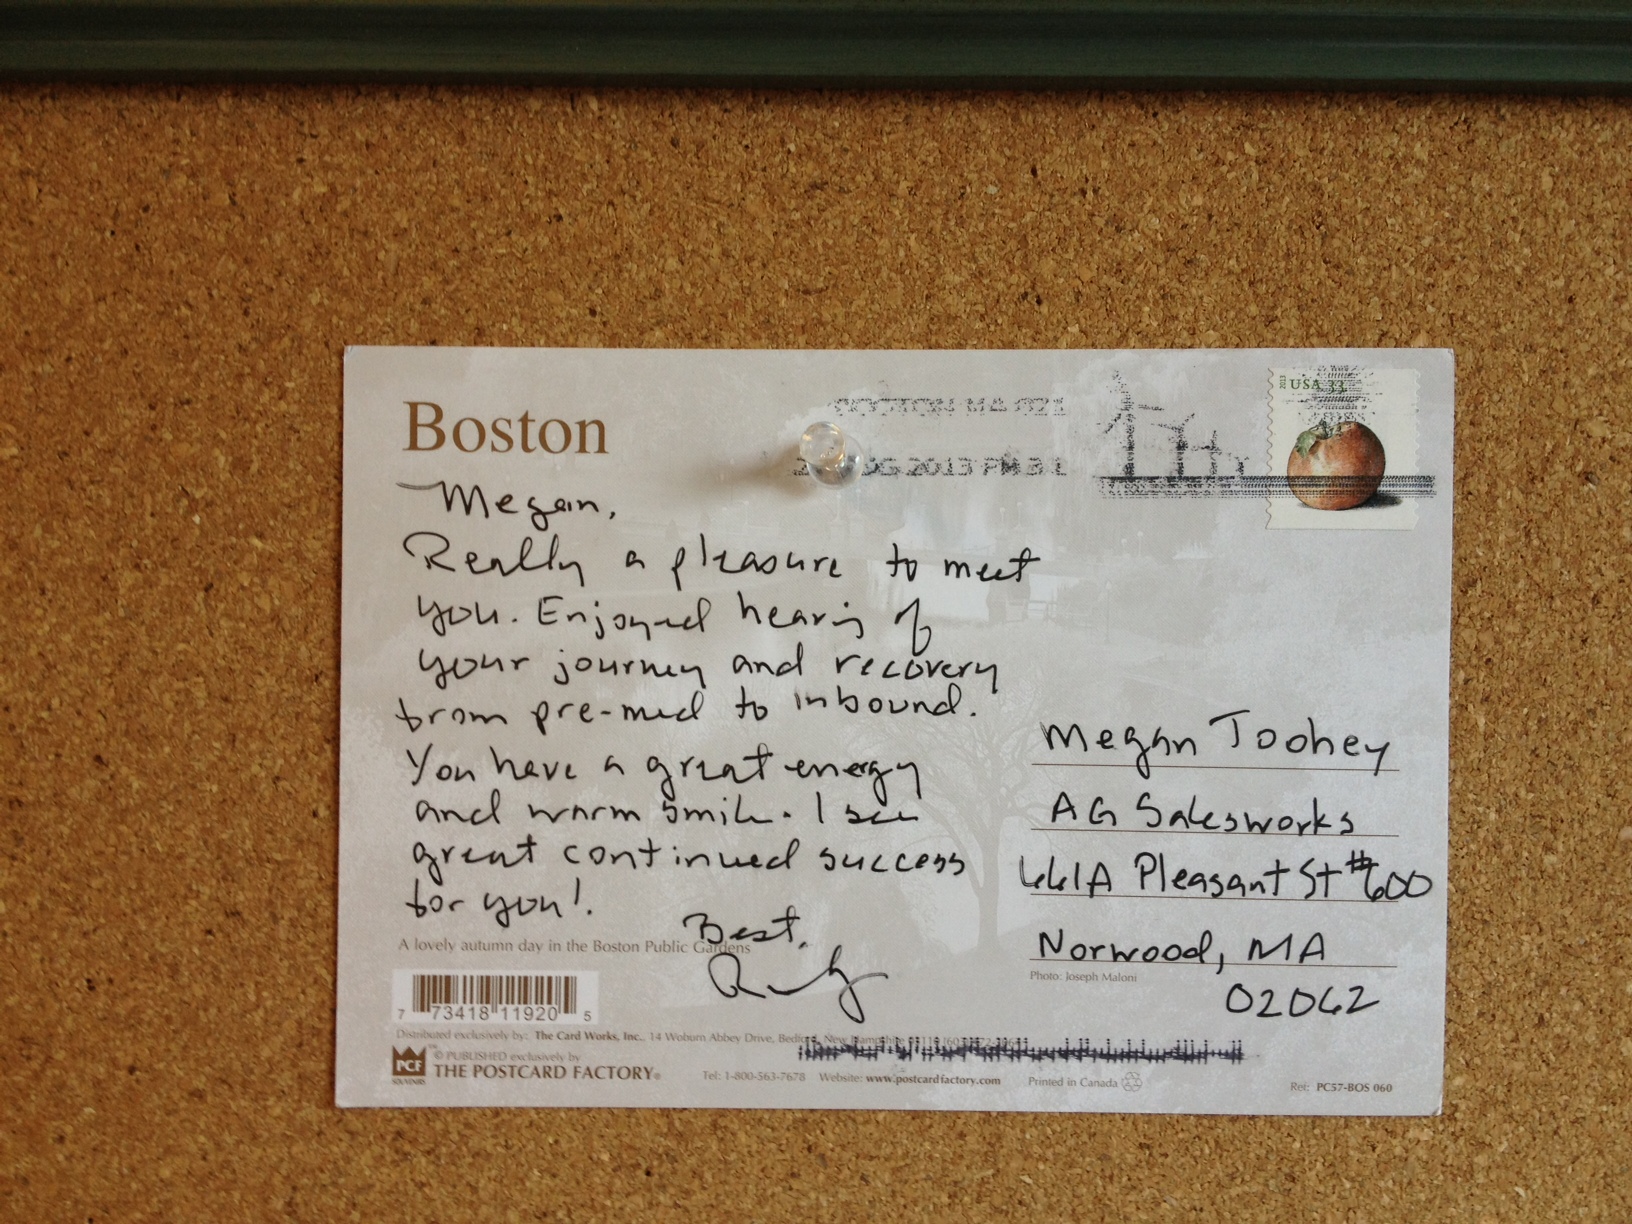 Boston
BOSTON MA 021
AUG 2013 PM 3 L
2013 USA 33
Megan,
Really a pleasure to meet
you. Enjoyed hearing of
your journey and recovery
from pre-med to inbound.
You have a great energy
and warm smile. I see
great continued success
for you!
Best,
A lovely autumn day in the Boston Public Gardens
Megan Toohey
AG Salesworks
661A Pleasant St #600
Norwood, MA
Photo: Joseph Maloni
02062
7 73418 11920 5
Distributed exclusively by: The Card Works, Inc., 14 Woburn Abbey Drive, Bedford, New Hampshire
PCF SOUVENIRS
© PUBLISHED exclusively by
THE POSTCARD FACTORY®
Tel: 1-800-563-7678 Website: www.postcardfactory.com Printed in Canada
Ref: PC57-BOS 060